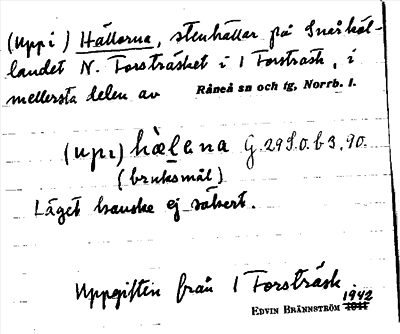 (Uppi) Hällorna, stenhällar på Snårhäl-
landet N. Forsträsket i 1 Forsträsk, i
mellersta delen av Råneå sn och tg, Norrb. l.
(upı) hæ̀lana G. 29 f.0.63.90.
(bruksmål)
Läget kanske ej säkert.
Uppgiften från 1 Forsträsk
1942
EDVIN BRÄNNSTRÖM 1941